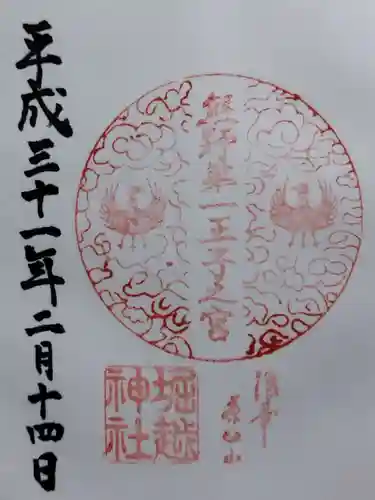 熊野第一王子之宮
堀越
神社
平成三十一年二月十四日